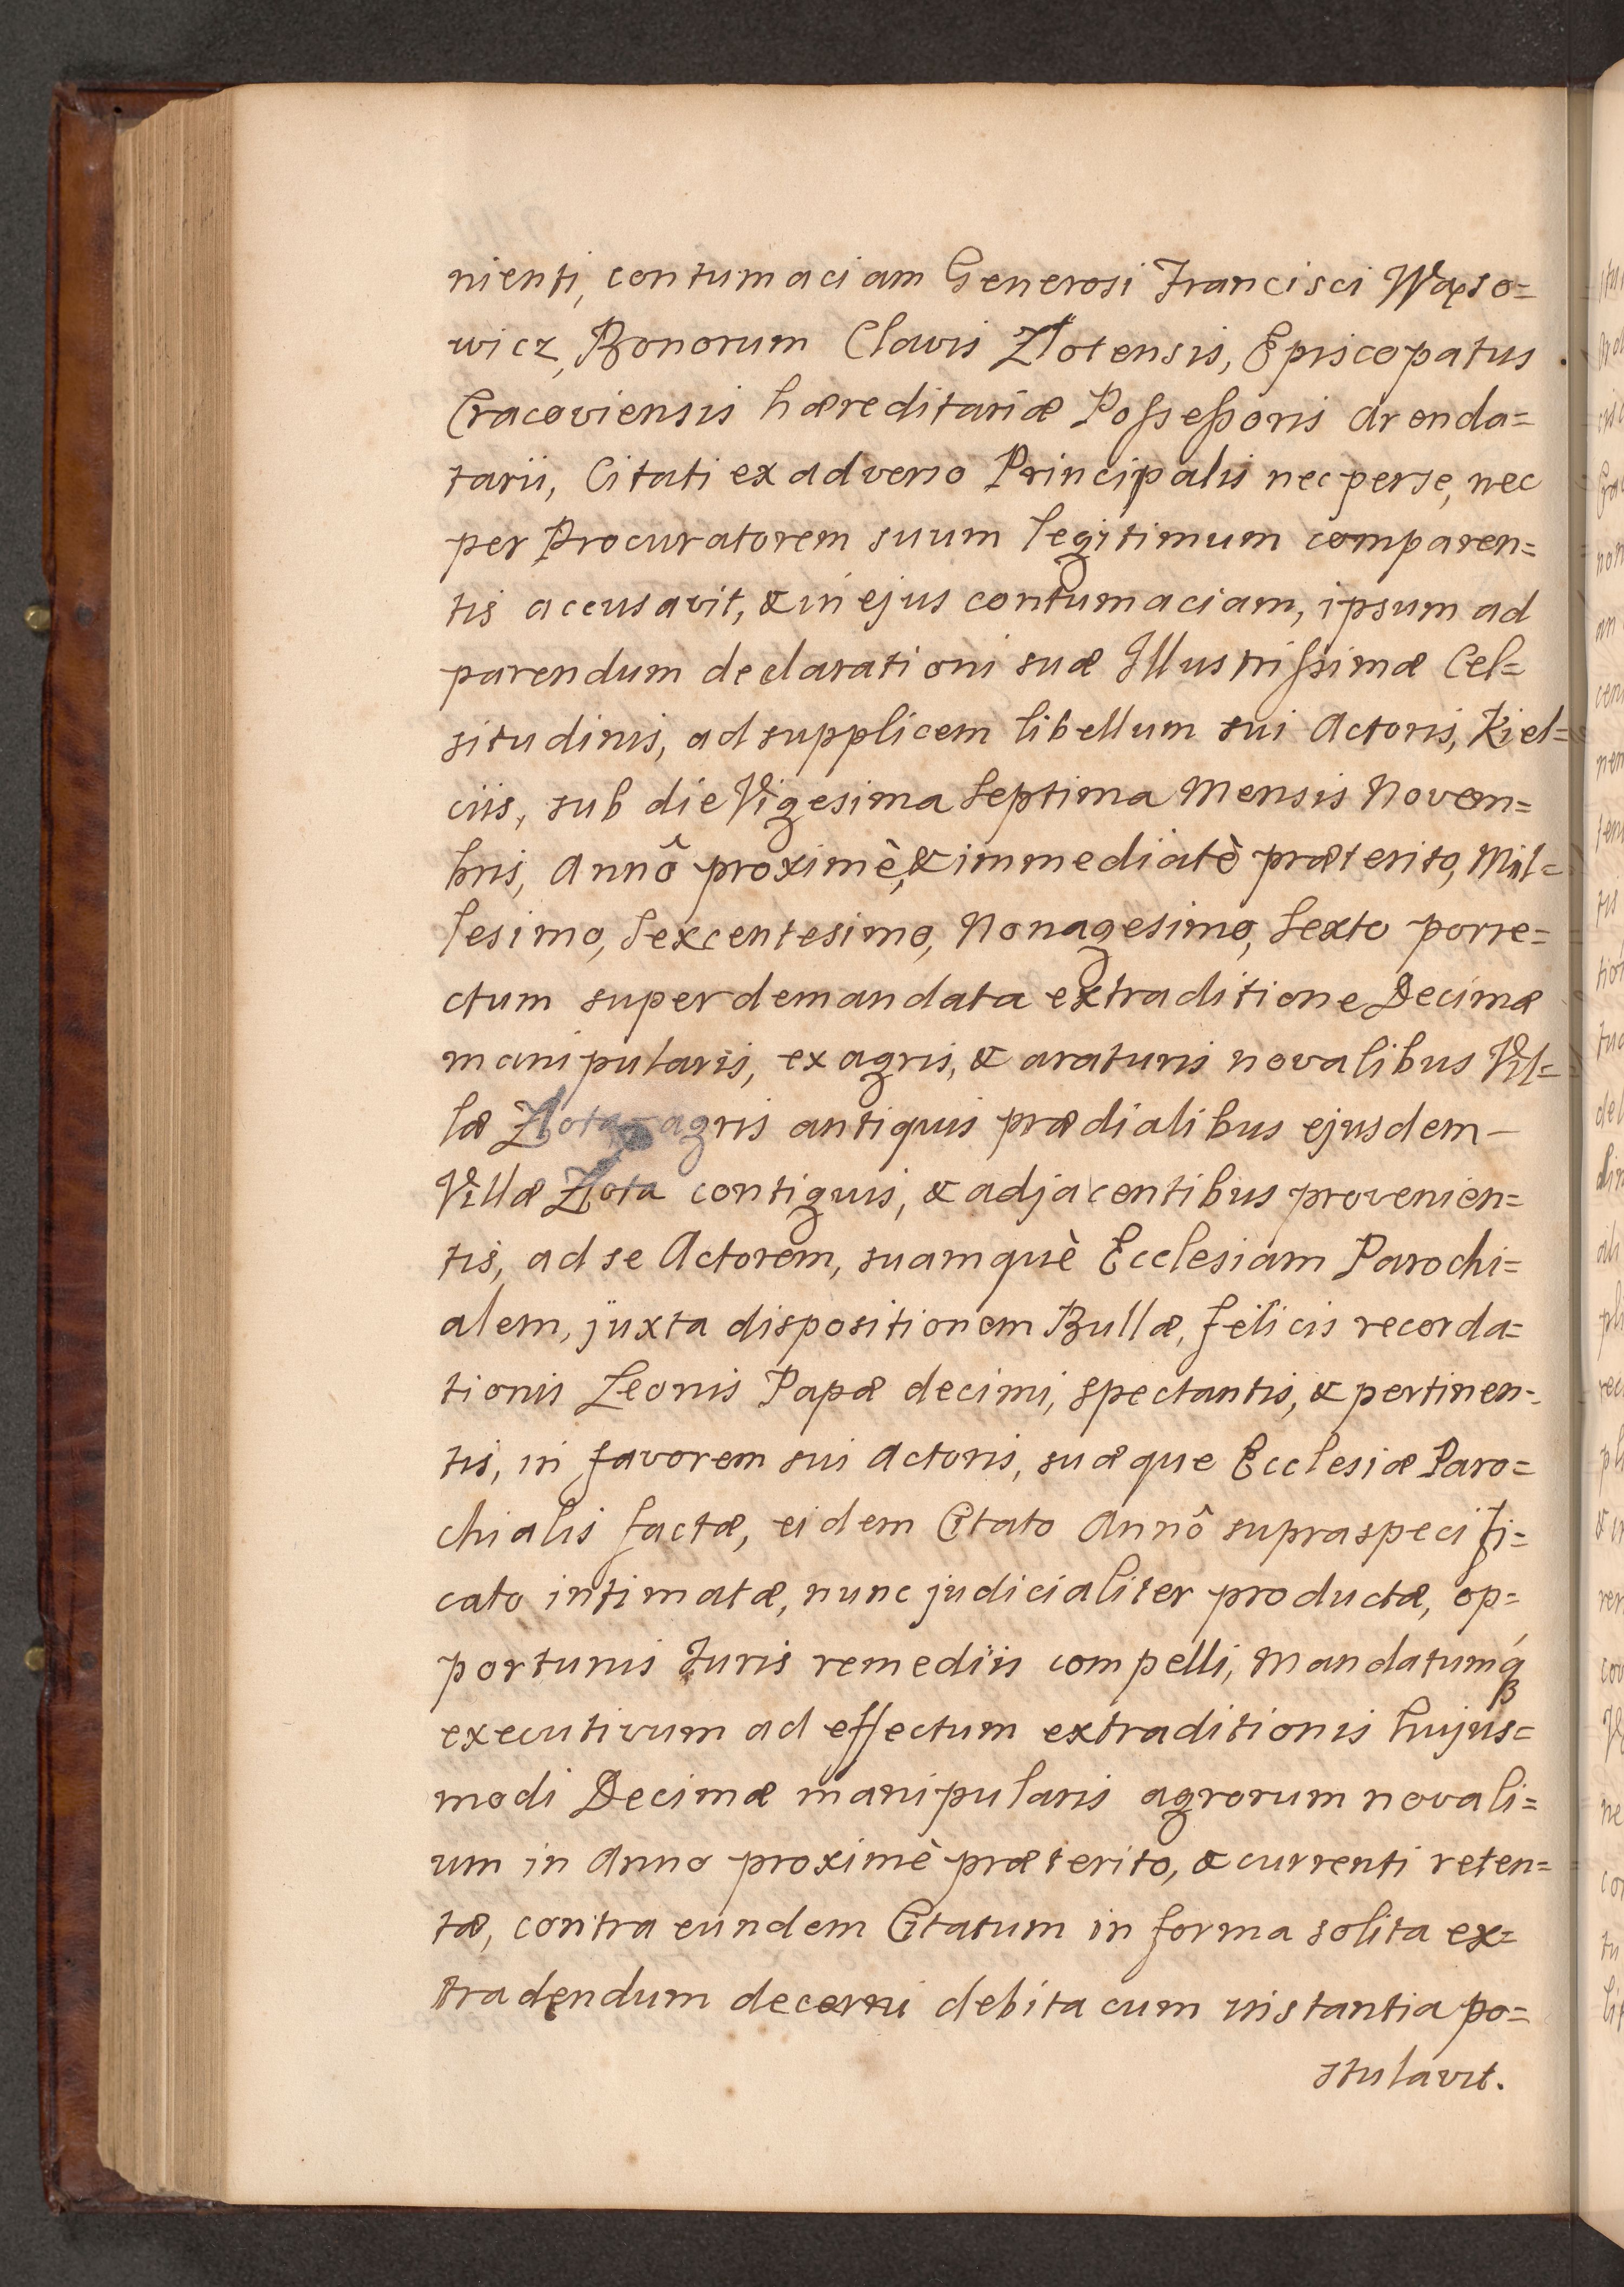 nienti, contumaciam Generosi Francisci Wąso=
wicz, Bonorum Clavis Złotensis, Episcopatus
Cracoviensis hæreditariæ Possessoris Arenda=
tarii, Citati ex adverso Principalis nec per se, nec
per Procuratorem suum legitimum comparen=
tis accusavit, & in ejus contumaciam, ipsum ad
parendum declarationi suæ Illustrissimæ Cel=
situdinis, ad supplicem libellum sui Actoris, Kiel=
ciis, sub die Vigesima Septima Mensis Novem=
bris, Annô proximè, & immediatè præterito, Mil=
lesimo, Sexcentesimo, Nonagesimo, Sexto porre=
ctum super demandata extraditione Decimæ
manipularis, ex agris, & araturis novalibus Vil=
læ Złota agris antiquis prædialibus ejusdem
Villæ Złota contiguis, & adjacentibus provenien=
tis, ad se Actorem, suamquè Ecclesiam Parochi=
alem, juxta dispositionem Bullæ, felicis recorda=
tionis Leonis Papæ decimi, spectantis, & pertinen=
tis, in favorem sui Actoris, suæque Ecclesiæ Paro=
chialis factæ, eidem Citato Annô supraspecifi=
cato intimatæ, nunc judicialiter productæ, op=
portunis Juris remediis compelli, Mandatumq́
executivum ad effectum extraditionis hujus=
modi Decimæ manipularis agrorum novali=
um in Anno proximè præterito, & currenti reten=
tæ, contra eundem Citatum in forma solita ex=
tradendum decerni debita cum instantia po=
stulavit.